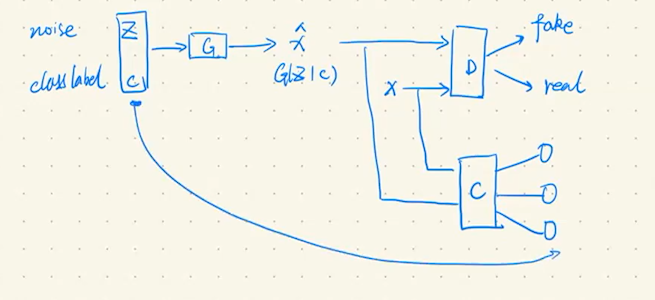 noise
class label
Z
C
G
X̂
G(Z|C)
X
D
fake
real
C